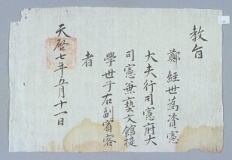 教旨
鄭經世爲資憲
大夫行司憲府大
司憲兼藝文館提
學世子右副賓客
者
天啓七年五月十一日